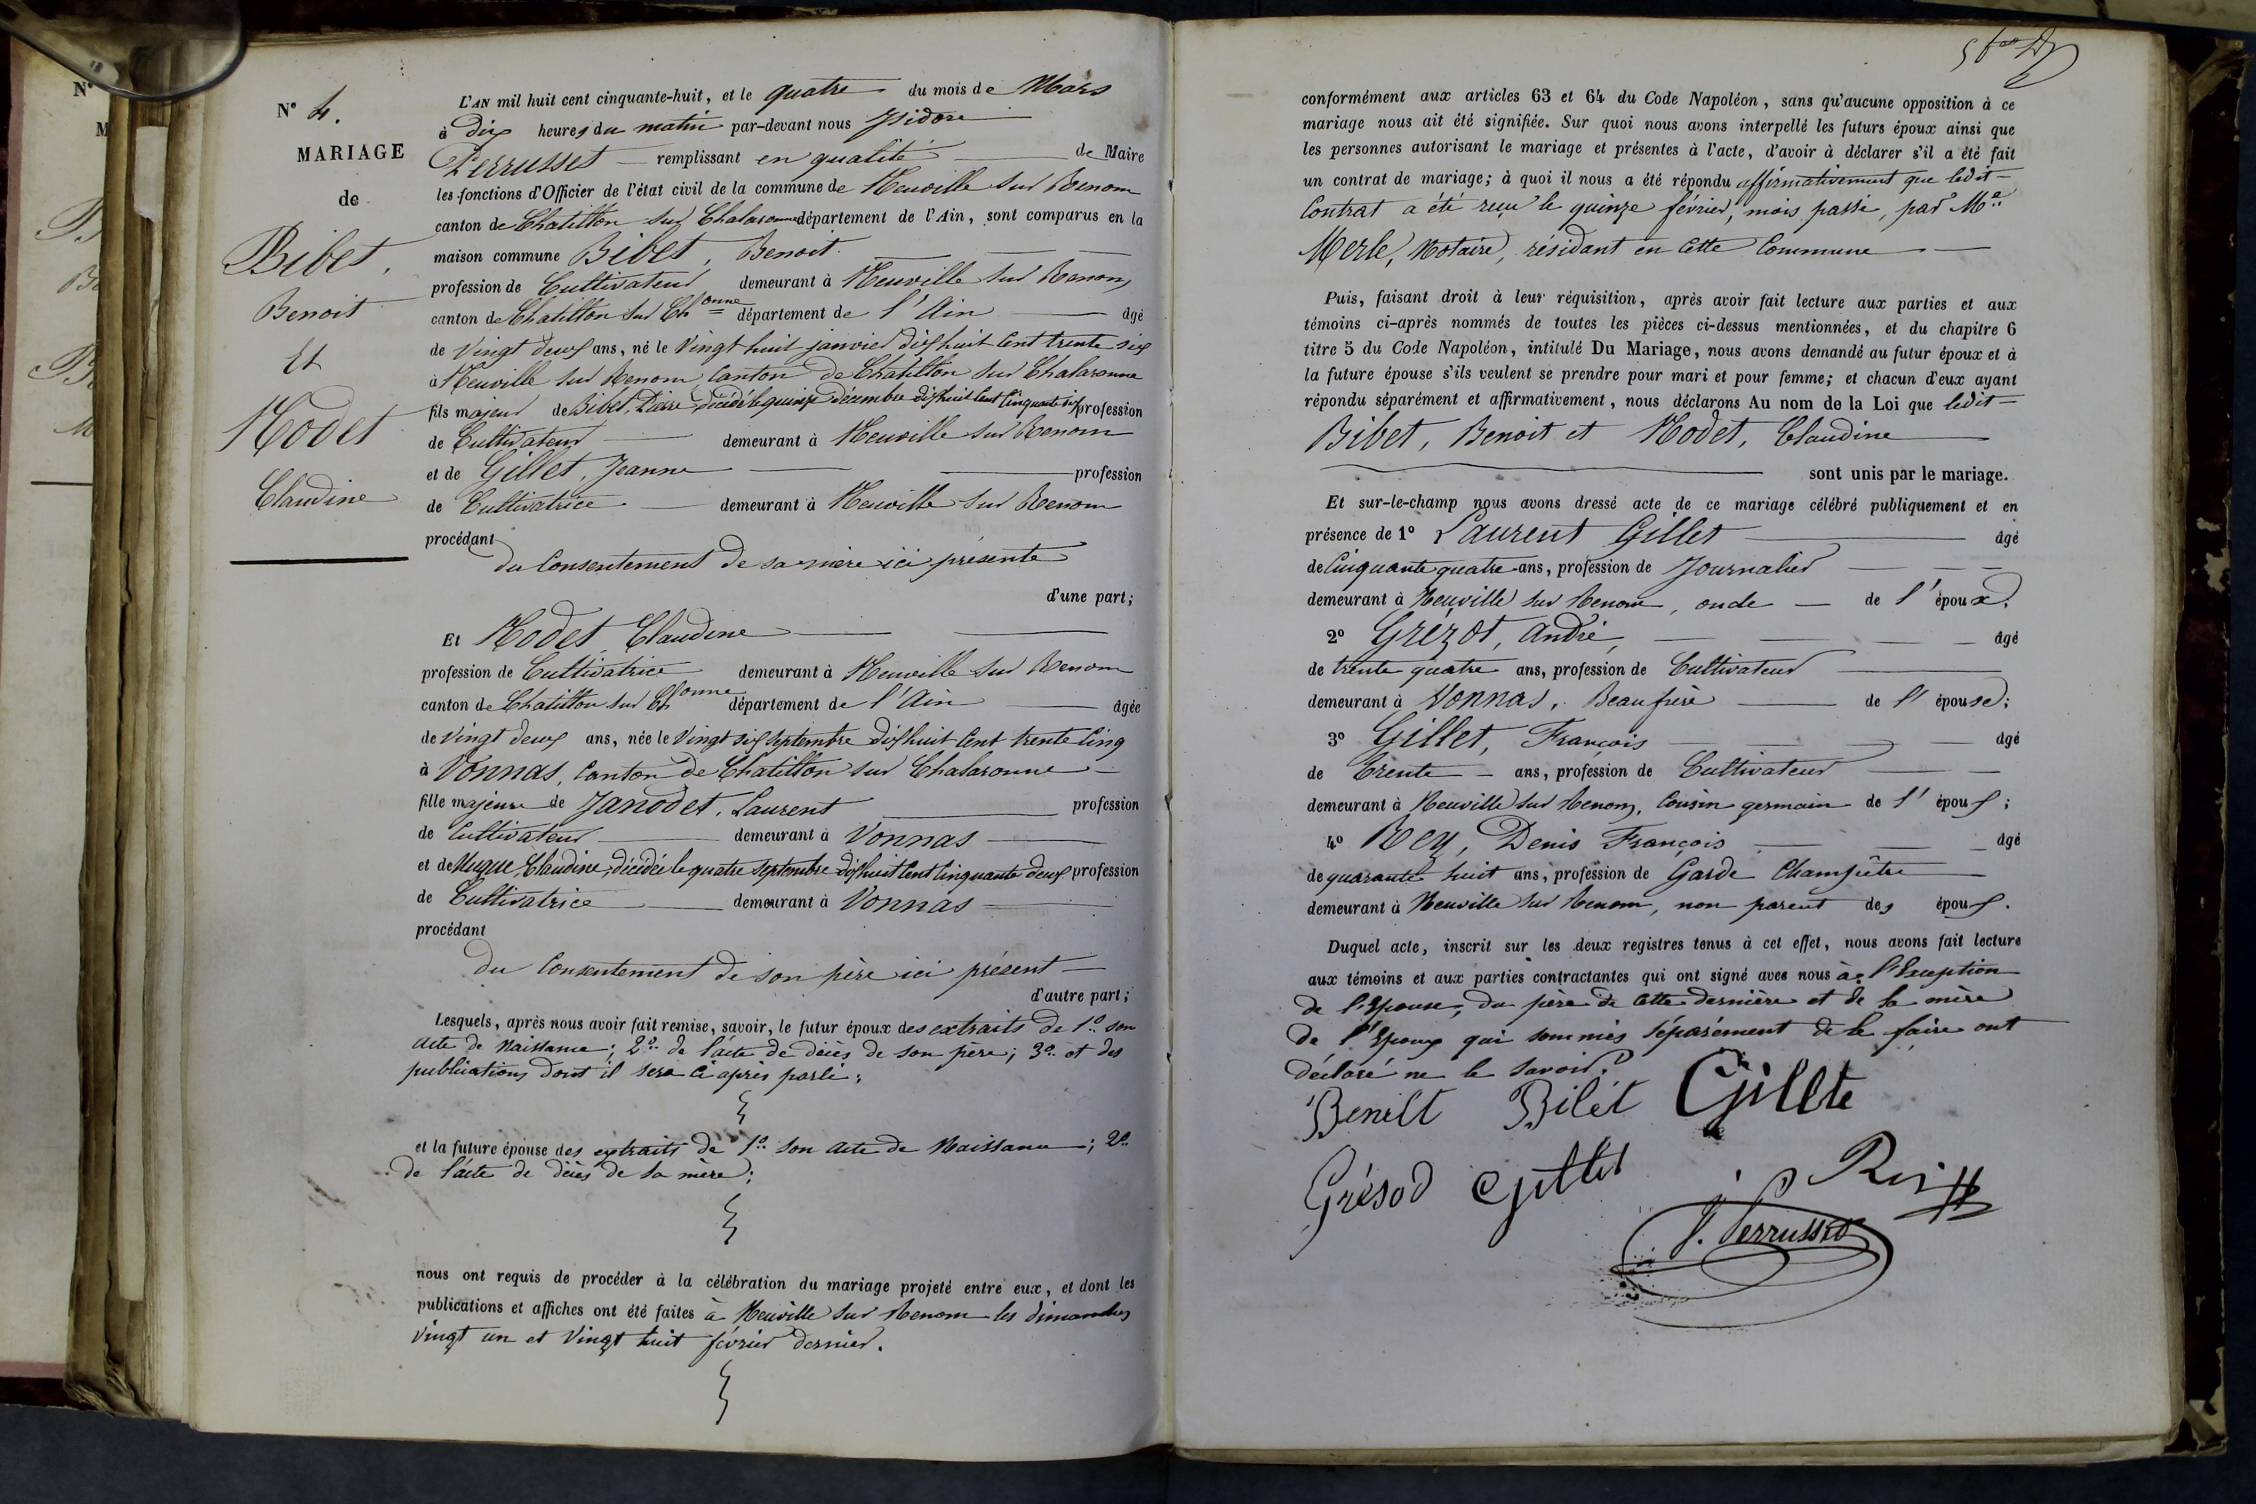 N° 4.
MARIAGE
de
Bibet,
Benoit
Et
Nodet
Claudine
L'AN mil huit cent cinquante-huit, et le quatre du mois de Mars
à dix heures du matin par-devant nous Isidore
Perrusset remplissant en qualité de Maire
les fonctions d'Officier de l'état civil de la commune de Neuville sur Renom
canton de Chatillon sur Chalaronne département de l'Ain, sont comparus en la
maison commune Bibet, Benoit
profession de Cultivateur demeurant à Neuville sur Renom
canton de Chatillon sur Chonne département de l'Ain âgé
de vingt deux ans, né le vingt huit janvier dix huit cent trente six
à Neuville sur Renom, canton de Chatillon sur Chalaronne
fils majeur de Bibet, Pierre décédé le quinze décembre dix huit cent cinquante six profession
de Cultivateur demeurant à Neuville sur Renom
et de Gillet, Jeanne profession
de Cultivatrice demeurant à Neuville sur Renom
procédant
du consentement de sa mère ici présente
d'une part;
Et Nodet Claudine
profession de Cultivatrice demeurant à Neuville sur Renom
canton de Chatillon sur Chonne département de l'Ain âgée
de vingt deux ans, née le vingt six septembre dix huit cent trente cinq
à Vonnas, canton de Chatillon sur Chalaronne
fille majeure de Janodet, Laurent profession
de Cultivateur demeurant à Vonnas
et de Claudine, décédée le quatre septembre dix huit cent cinquante deux profession
de Cultivatrice demeurant à Vonnas
procédant
du consentement de son père ici présent
d'autre part;
Lesquels, après nous avoir fait remise, savoir, le futur époux des extraits de 1° son
acte de naissance; 2° de l'acte de décès de son père; 3° et des
publications dont il sera ci après parlé;
et la future épouse des extraits de 1° son acte de Naissance; 2°
de l'acte de décès de sa mère;
nous ont requis de procéder à la célébration du mariage projeté entre eux, et dont les
publications et affiches ont été faites à Neuville sur Renom les dimanches
vingt un et vingt huit février dernier.
conformément aux articles 63 et 64 du Code Napoléon, sans qu'aucune opposition à ce
mariage nous ait été signifiée. Sur quoi nous avons interpellé les futurs époux ainsi que
les personnes autorisant le mariage et présentes à l'acte, d'avoir à déclarer s'il a été fait
un contrat de mariage; à quoi il nous a été répondu affirmativement que ledit
Contrat a été reçu le quinze février, mois passé, par Me
Merle, Notaire, résidant en cette Commune
Puis, faisant droit à leur réquisition, après avoir fait lecture aux parties et aux
témoins ci-après nommés de toutes les pièces ci-dessus mentionnées, et du chapitre 6
titre 5 du Code Napoléon, intitulé Du Mariage, nous avons demandé au futur époux et à
la future épouse s'ils veulent se prendre pour mari et pour femme; et chacun d'eux ayant
répondu séparément et affirmativement, nous déclarons Au nom de la Loi que ledit
Bibet, Benoit et Nodet, Claudine
sont unis par le mariage.
Et sur-le-champ nous avons dressé acte de ce mariage célébré publiquement et en
présence de 1° Laurent Gillet âgé
de cinquante quatre ans, profession de Journalier
demeurant à Neuville sur Renom, oncle de l'époux.
2° Grézot, André, âgé
de trente quatre ans, profession de Cultivateur
demeurant à Vonnas, Beaufrère de l'épouse;
3° Gillet, François âgé
de Trente ans, profession de Cultivateur
demeurant à Neuville sur Renom, Cousin germain de l'époux;
4° Rey, Denis François âgé
de quarante huit ans, profession de Garde Champêtre
demeurant à Neuville sur Renom, non parent des époux.
Duquel acte, inscrit sur les deux registres tenus à cet effet, nous avons fait lecture
aux témoins et aux parties contractantes qui ont signé avec nous à l'Exception
de l'Epouse, du père de cette dernière et de la mère
de l'Epoux qui sommés séparément de le faire ont
déclaré ne le savoir.
Benilt Bilet Gillte
Grésod Gillet
J. Perrusset